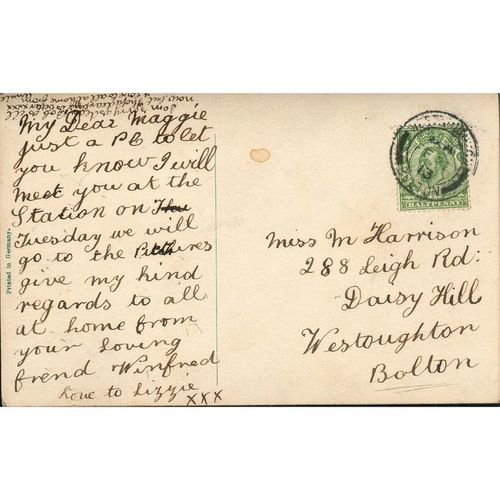 My Dear Maggie
just a PC to let
you know I will
meet you at the
Station on Thu
Tuesday we will
go to the Pitthires
give my kind
regards to all
at home from
your loving
frend Winfred
Love to Lizzie
xxx
Printed in Germany.
HALFPENNY
13
Miss M Harrison
288 Leigh Rd:
Daisy Hill
Westoughton
Bolton